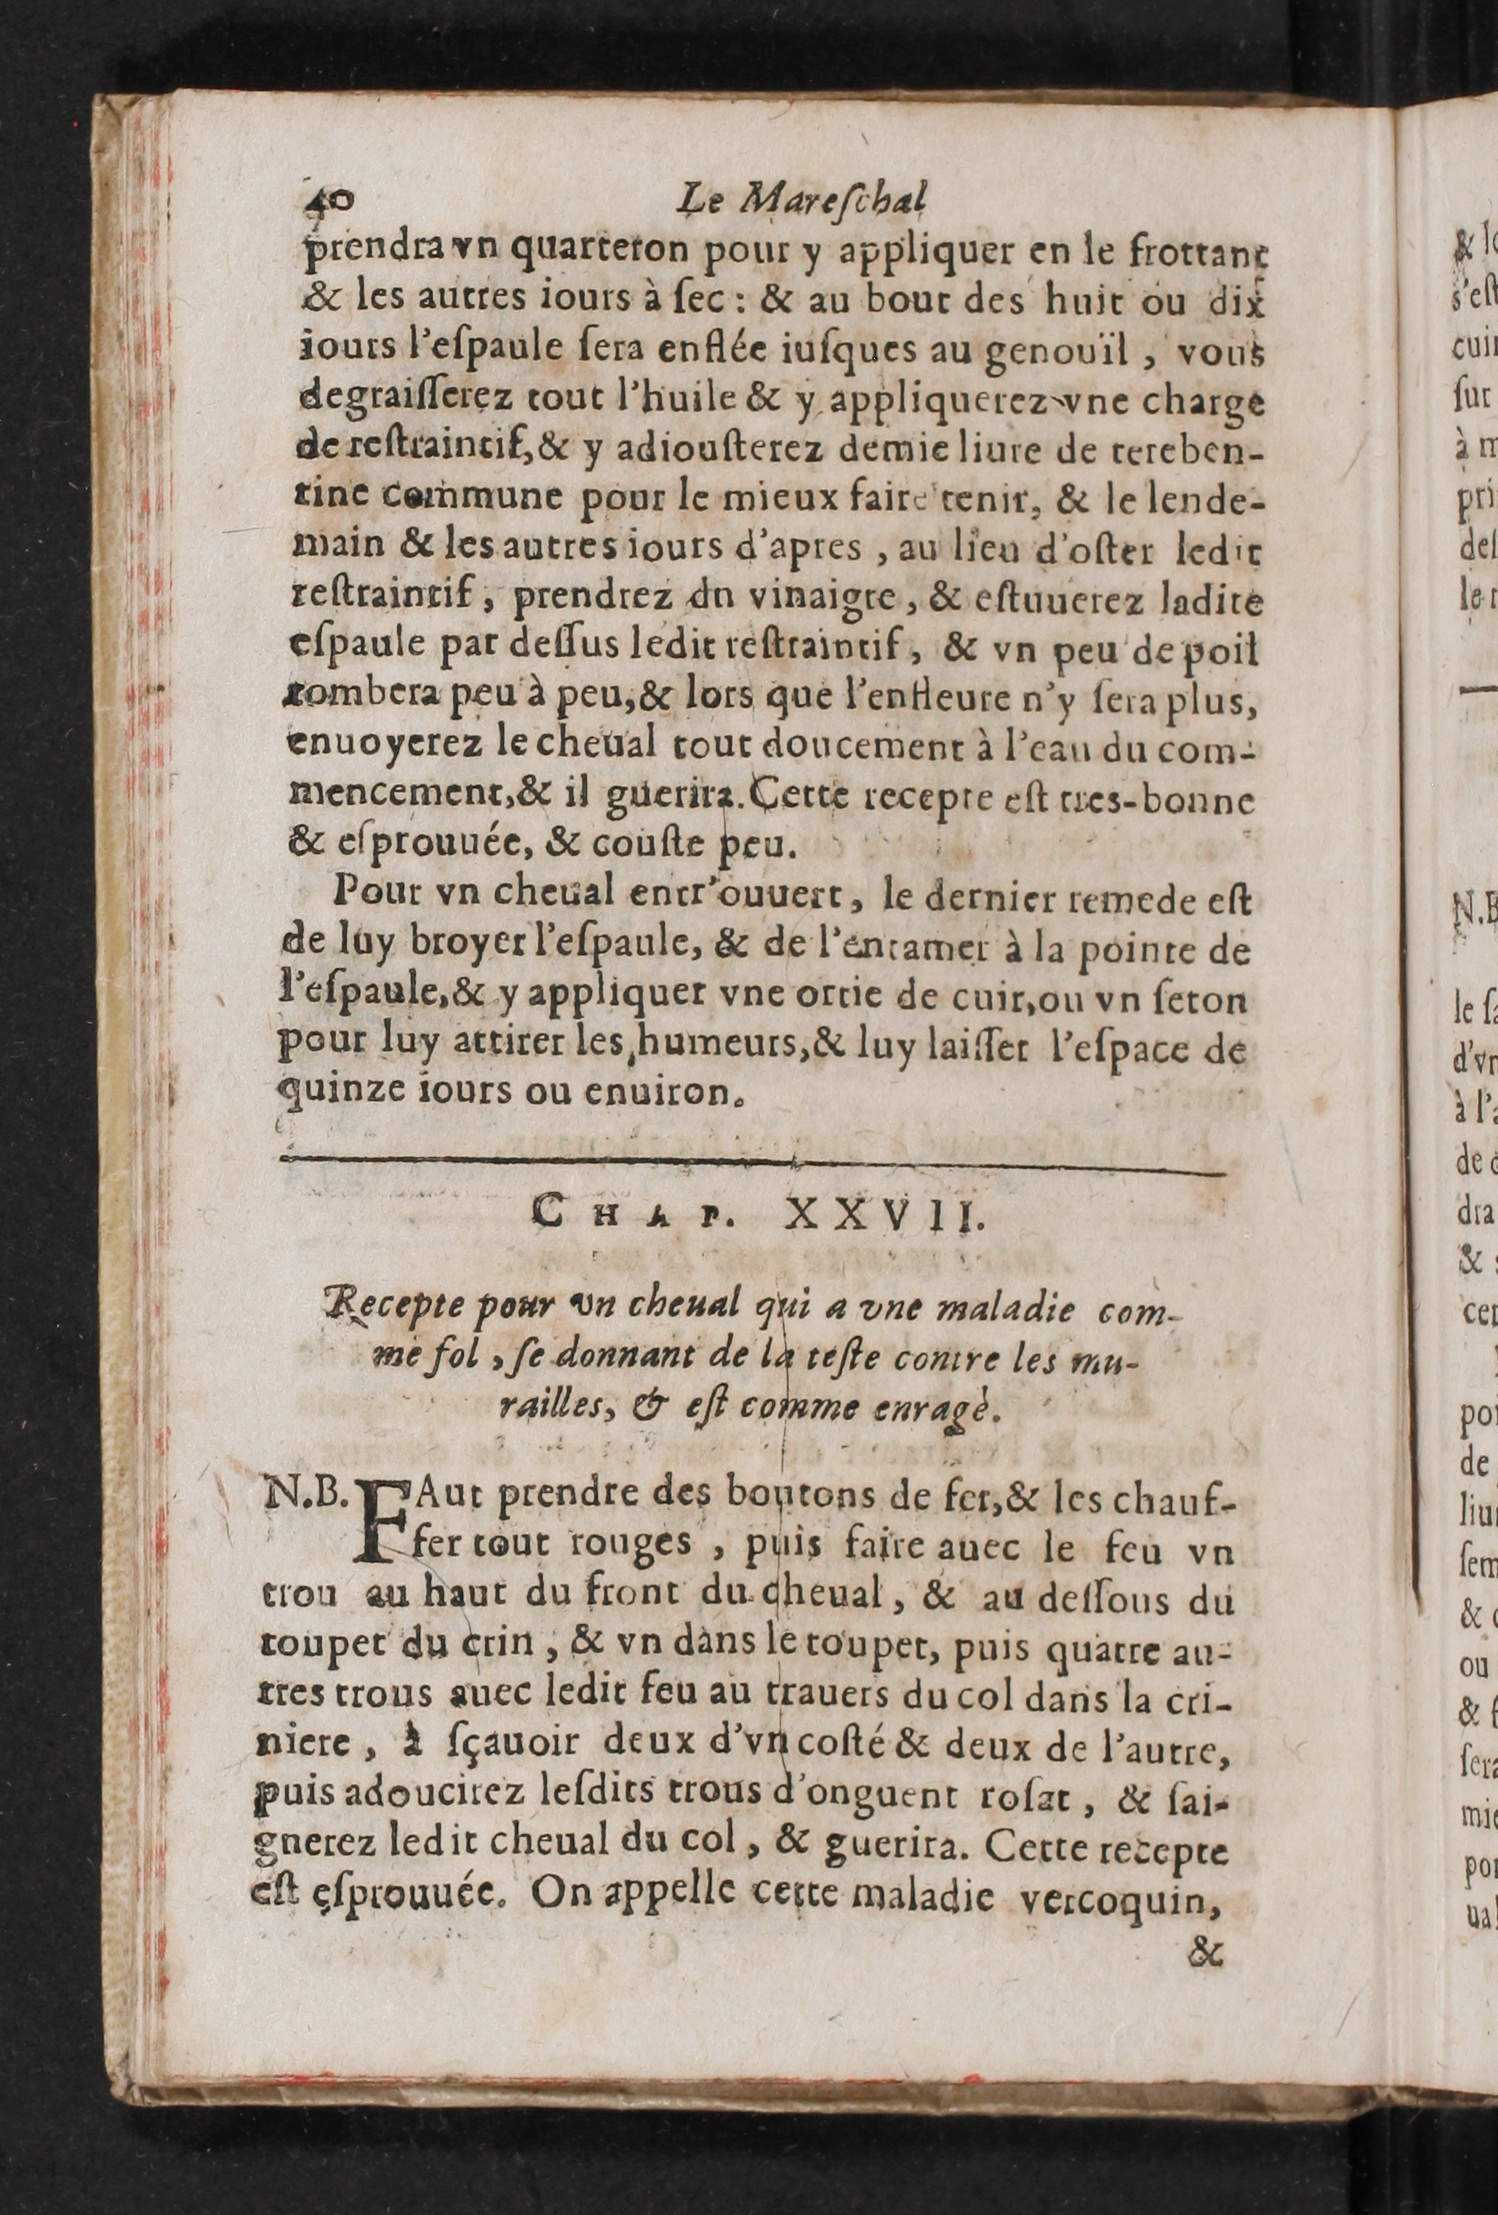 40 Le Mareſchal
prendra vn quarteron pour y appliquer en le frottant
& les autres iours à ſec : & au bout des huit ou dix
iours l'eſpaule ſera enflée iuſques au genouïl , vous
degraiſſerez tout l'huile & y appliquerez vne charge
de reſtraintif, & y adiouſterez demie liure de tereben-
tine commune pour le mieux faire tenir, & le lende-
main & les autres iours d'apres , au lieu d'oſter ledit
reſtraintif , prendrez dn vinaigre , & eſtuuerez ladite
eſpaule par deſſus ledit reſtraintif , & vn peu de poil
tombera peu à peu, & lors que l'enfleure n'y ſera plus,
enuoyerez le cheual tout doucement à l'eau du com-
mencement, & il guerira. Cette recepte eſt tres-bonne
& eſprouuée, & couſte peu.
Pour vn cheual entr'ouuert , le dernier remede eſt
de luy broyer l'eſpaule, & de l'entamer à la pointe de
l'eſpaule, & y appliquer vne ortie de cuir, ou vn ſeton
pour luy attirer les humeurs, & luy laiſſer l'eſpace de
quinze iours ou enuiron.
CHAP. XXVII.
Recepte pour vn cheual qui a vne maladie com-
me fol , ſe donnant de la teſte contre les mu-
railles, & eſt comme enragè.
N.B. FAut prendre des boutons de fer, & les chauf-
fer tout rouges , puis faire auec le feu vn
trou au haut du front du cheual , & au deſſous du
toupet du crin , & vn dans le toupet, puis quatre au-
tres trous auec ledit feu au trauers du col dans la cri-
niere , à ſçauoir deux d'vn coſté & deux de l'autre,
puis adoucirez leſdits trous d'onguent roſat , & ſai-
gnerez ledit cheual du col , & guerira. Cette recepte
eſt eſprouuée. On appelle cette maladie vercoquin,
&